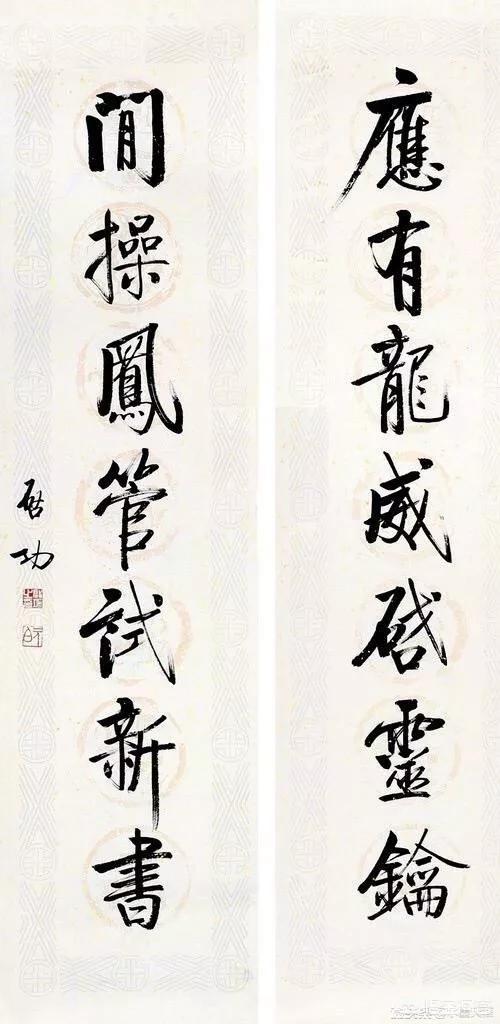 應有龍威啓靈鑰
閒操鳳管試新書
啟功